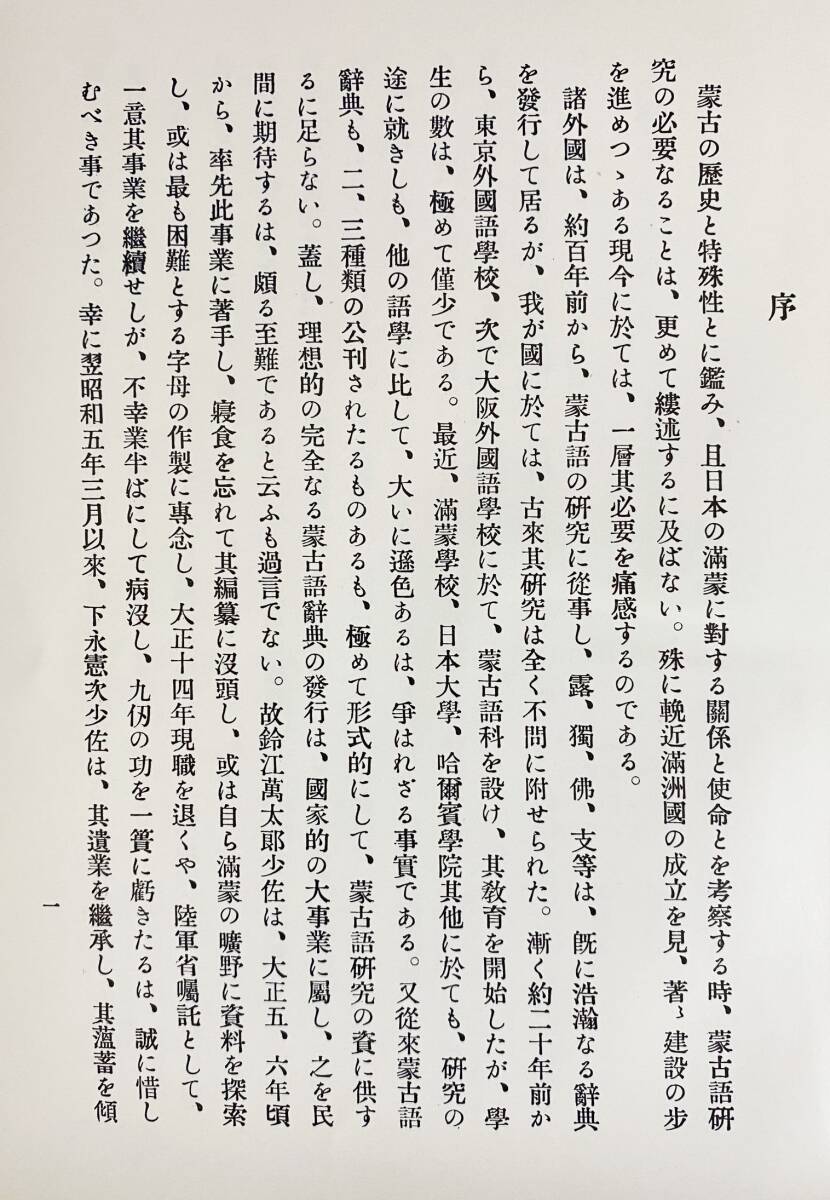 序
蒙古の歷史と特殊性とに鑑み、且日本の滿蒙に對する關係と使命とを考察する時、蒙古語硏
究の必要なることは、更めて縷述するに及ばない。殊に輓近滿洲國の成立を見、著〻建設の步
を進めつゝある現今に於ては、一層其必要を痛感するのである。
諸外國は、約百年前から、蒙古語の硏究に從事し、露、獨、佛、支等は、旣に浩瀚なる辭典
を發行して居るが、我が國に於ては、古來其硏究は全く不問に附せられた。漸く約二十年前か
ら、東京外國語學校、次で大阪外國語學校に於て、蒙古語科を設け、其敎育を開始したが、學
生の數は、極めて僅少である。最近、滿蒙學校、日本大學、哈爾賓學院其他に於ても、硏究の
途に就きしも、他の語學に比して、大いに遜色あるは、爭はれざる事實である。又從來蒙古語
辭典も、二、三種類の公刊されたるものあるも、極めて形式的にして、蒙古語硏究の資に供す
るに足らない。蓋し、理想的の完全なる蒙古語辭典の發行は、國家的の大事業に屬し、之を民
間に期待するは、頗る至難であると云ふも過言でない。故鈴江萬太郎少佐は、大正五、六年頃
から、率先此事業に著手し、寢食を忘れて其編纂に沒頭し、或は自ら滿蒙の曠野に資料を探索
し、或は最も困難とする字母の作製に專念し、大正十四年現職を退くや、陸軍省囑託として、
一意其事業を繼續せしが、不幸業半ばにして病沒し、九仞の功を一簣に虧きたるは、誠に惜し
むべき事であつた。幸に翌昭和五年三月以來、下永憲次少佐は、其遺業を繼承し、其薀蓄を傾
一